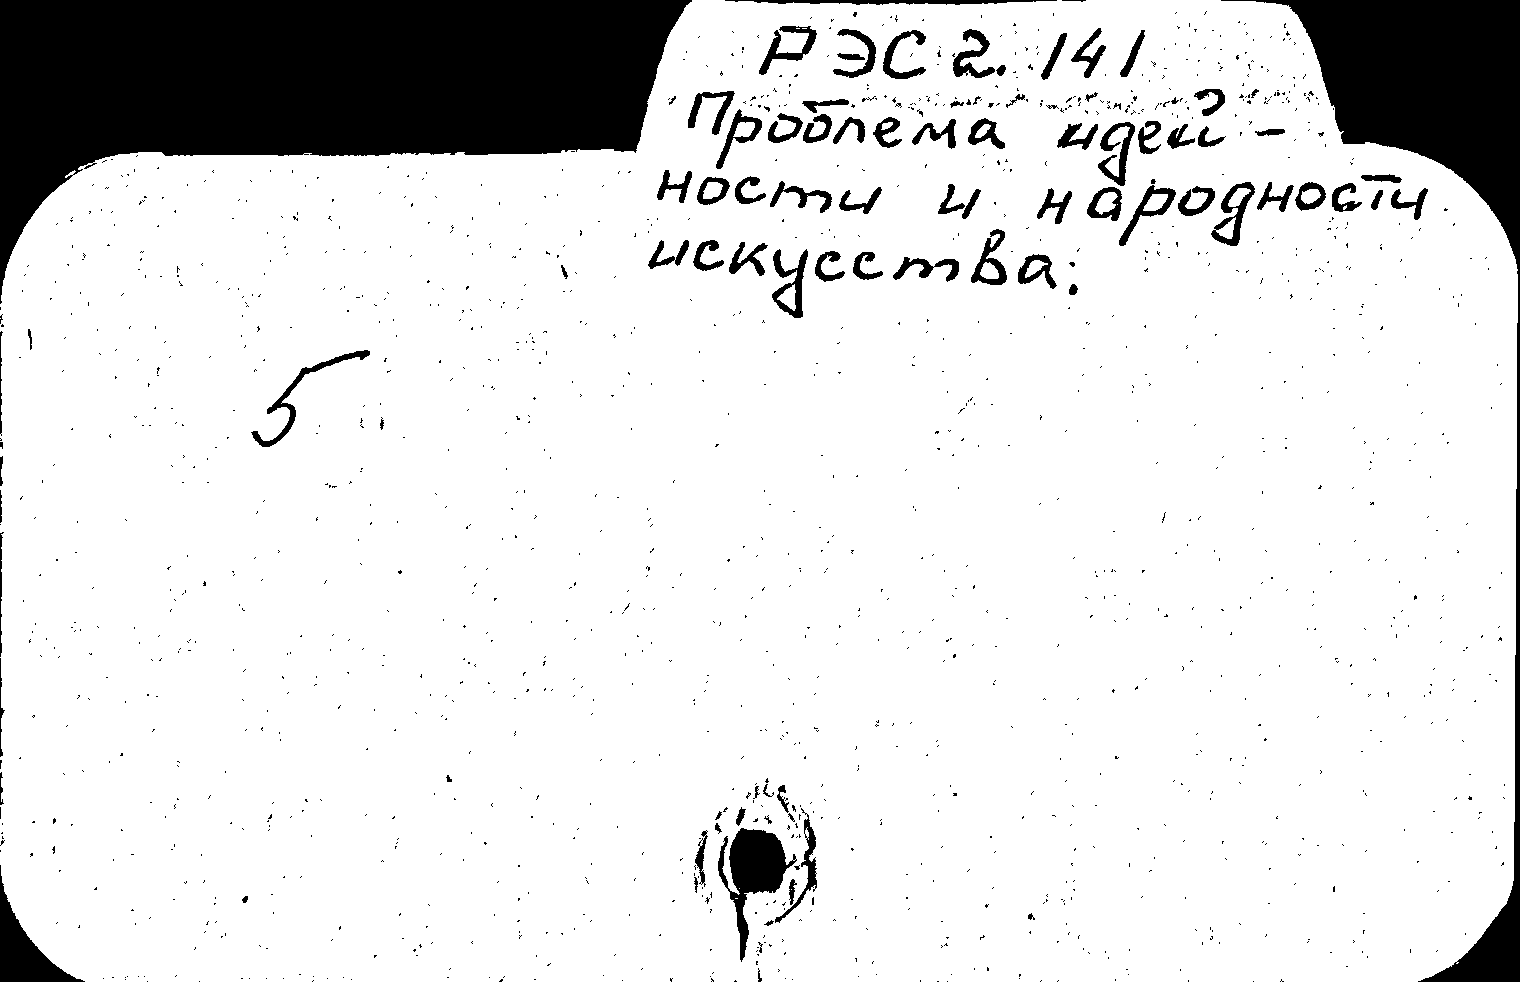 РЭС 2. 141
Проблема идей-
ности и народности
искусства.
5